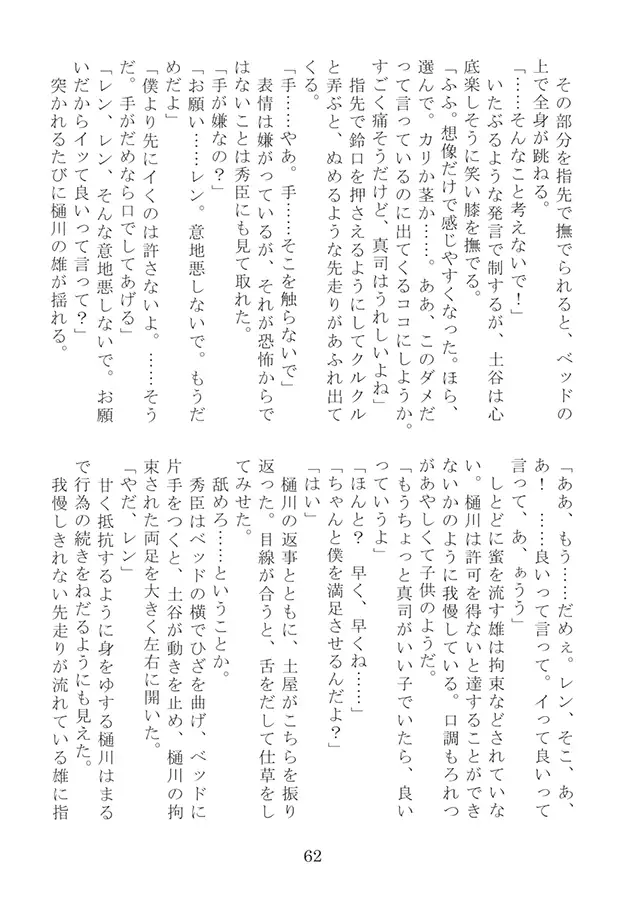 その部分を指先で撫でられると、ベッドの
上で全身が跳ねる。
「……そんなこと考えないで！」
　いたぶるような発言で制するが、土谷は心
底楽しそうに笑い膝を撫でる。
「ふふ。想像だけで感じやすくなった。ほら、
選んで。カリか茎か……。ああ、このダメだ
って言っているのに出てくるココにしようか。
すごく痛そうだけど、真司はうれしいよね」
　指先で鈴口を押さえるようにしてクルクル
と弄ぶと、ぬめるような先走りがあふれ出て
くる。
「手……やあ。手……そこを触らないで」
　表情は嫌がっているが、それが恐怖からで
はないことは秀臣にも見て取れた。
「手が嫌なの？」
「お願い……レン。意地悪しないで。もうだ
めだよ」
「僕より先にイくのは許さないよ。……そう
だ。手がだめなら口でしてあげる」
「レン、レン、そんな意地悪しないで。お願
いだからイッて良いって言って？」
　突かれるたびに樋川の雄が揺れる。
「ああ、もう……だめぇ。レン、そこ、あ、
あ！　……良いって言って。イって良いって
言って、あ、ぁうう」
　しとどに蜜を流す雄は拘束などされていな
い。樋川は許可を得ないと達することができ
ないかのように我慢している。口調もろれつ
があやしくて子供のようだ。
「もうちょっと真司がいい子でいたら、良い
っていうよ」
「ほんと？　早く、早くね……」
「ちゃんと僕を満足させるんだよ？」
「はい」
　樋川の返事とともに、土屋がこちらを振り
返った。目線が合うと、舌をだして仕草をし
てみせた。
　舐めろ……ということか。
　秀臣はベッドの横でひざを曲げ、ベッドに
片手をつくと、土谷が動きを止め、樋川の拘
束された両足を大きく左右に開いた。
「やだ、レン」
　甘く抵抗するように身をゆする樋川はまる
で行為の続きをねだるようにも見えた。
　我慢しきれない先走りが流れている雄に指
62